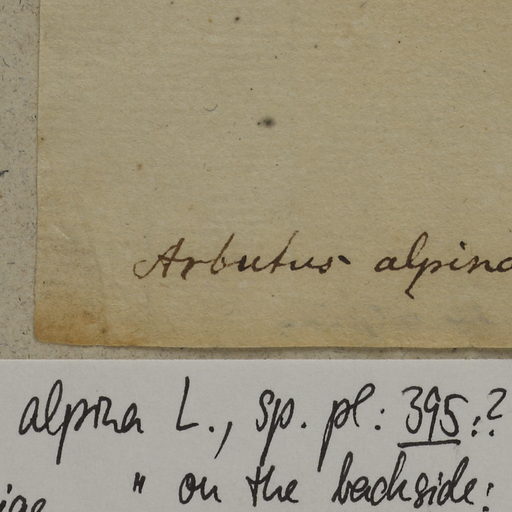 Arbutus alpina
alpina L., sp. pl: 395:?
" on the backside: